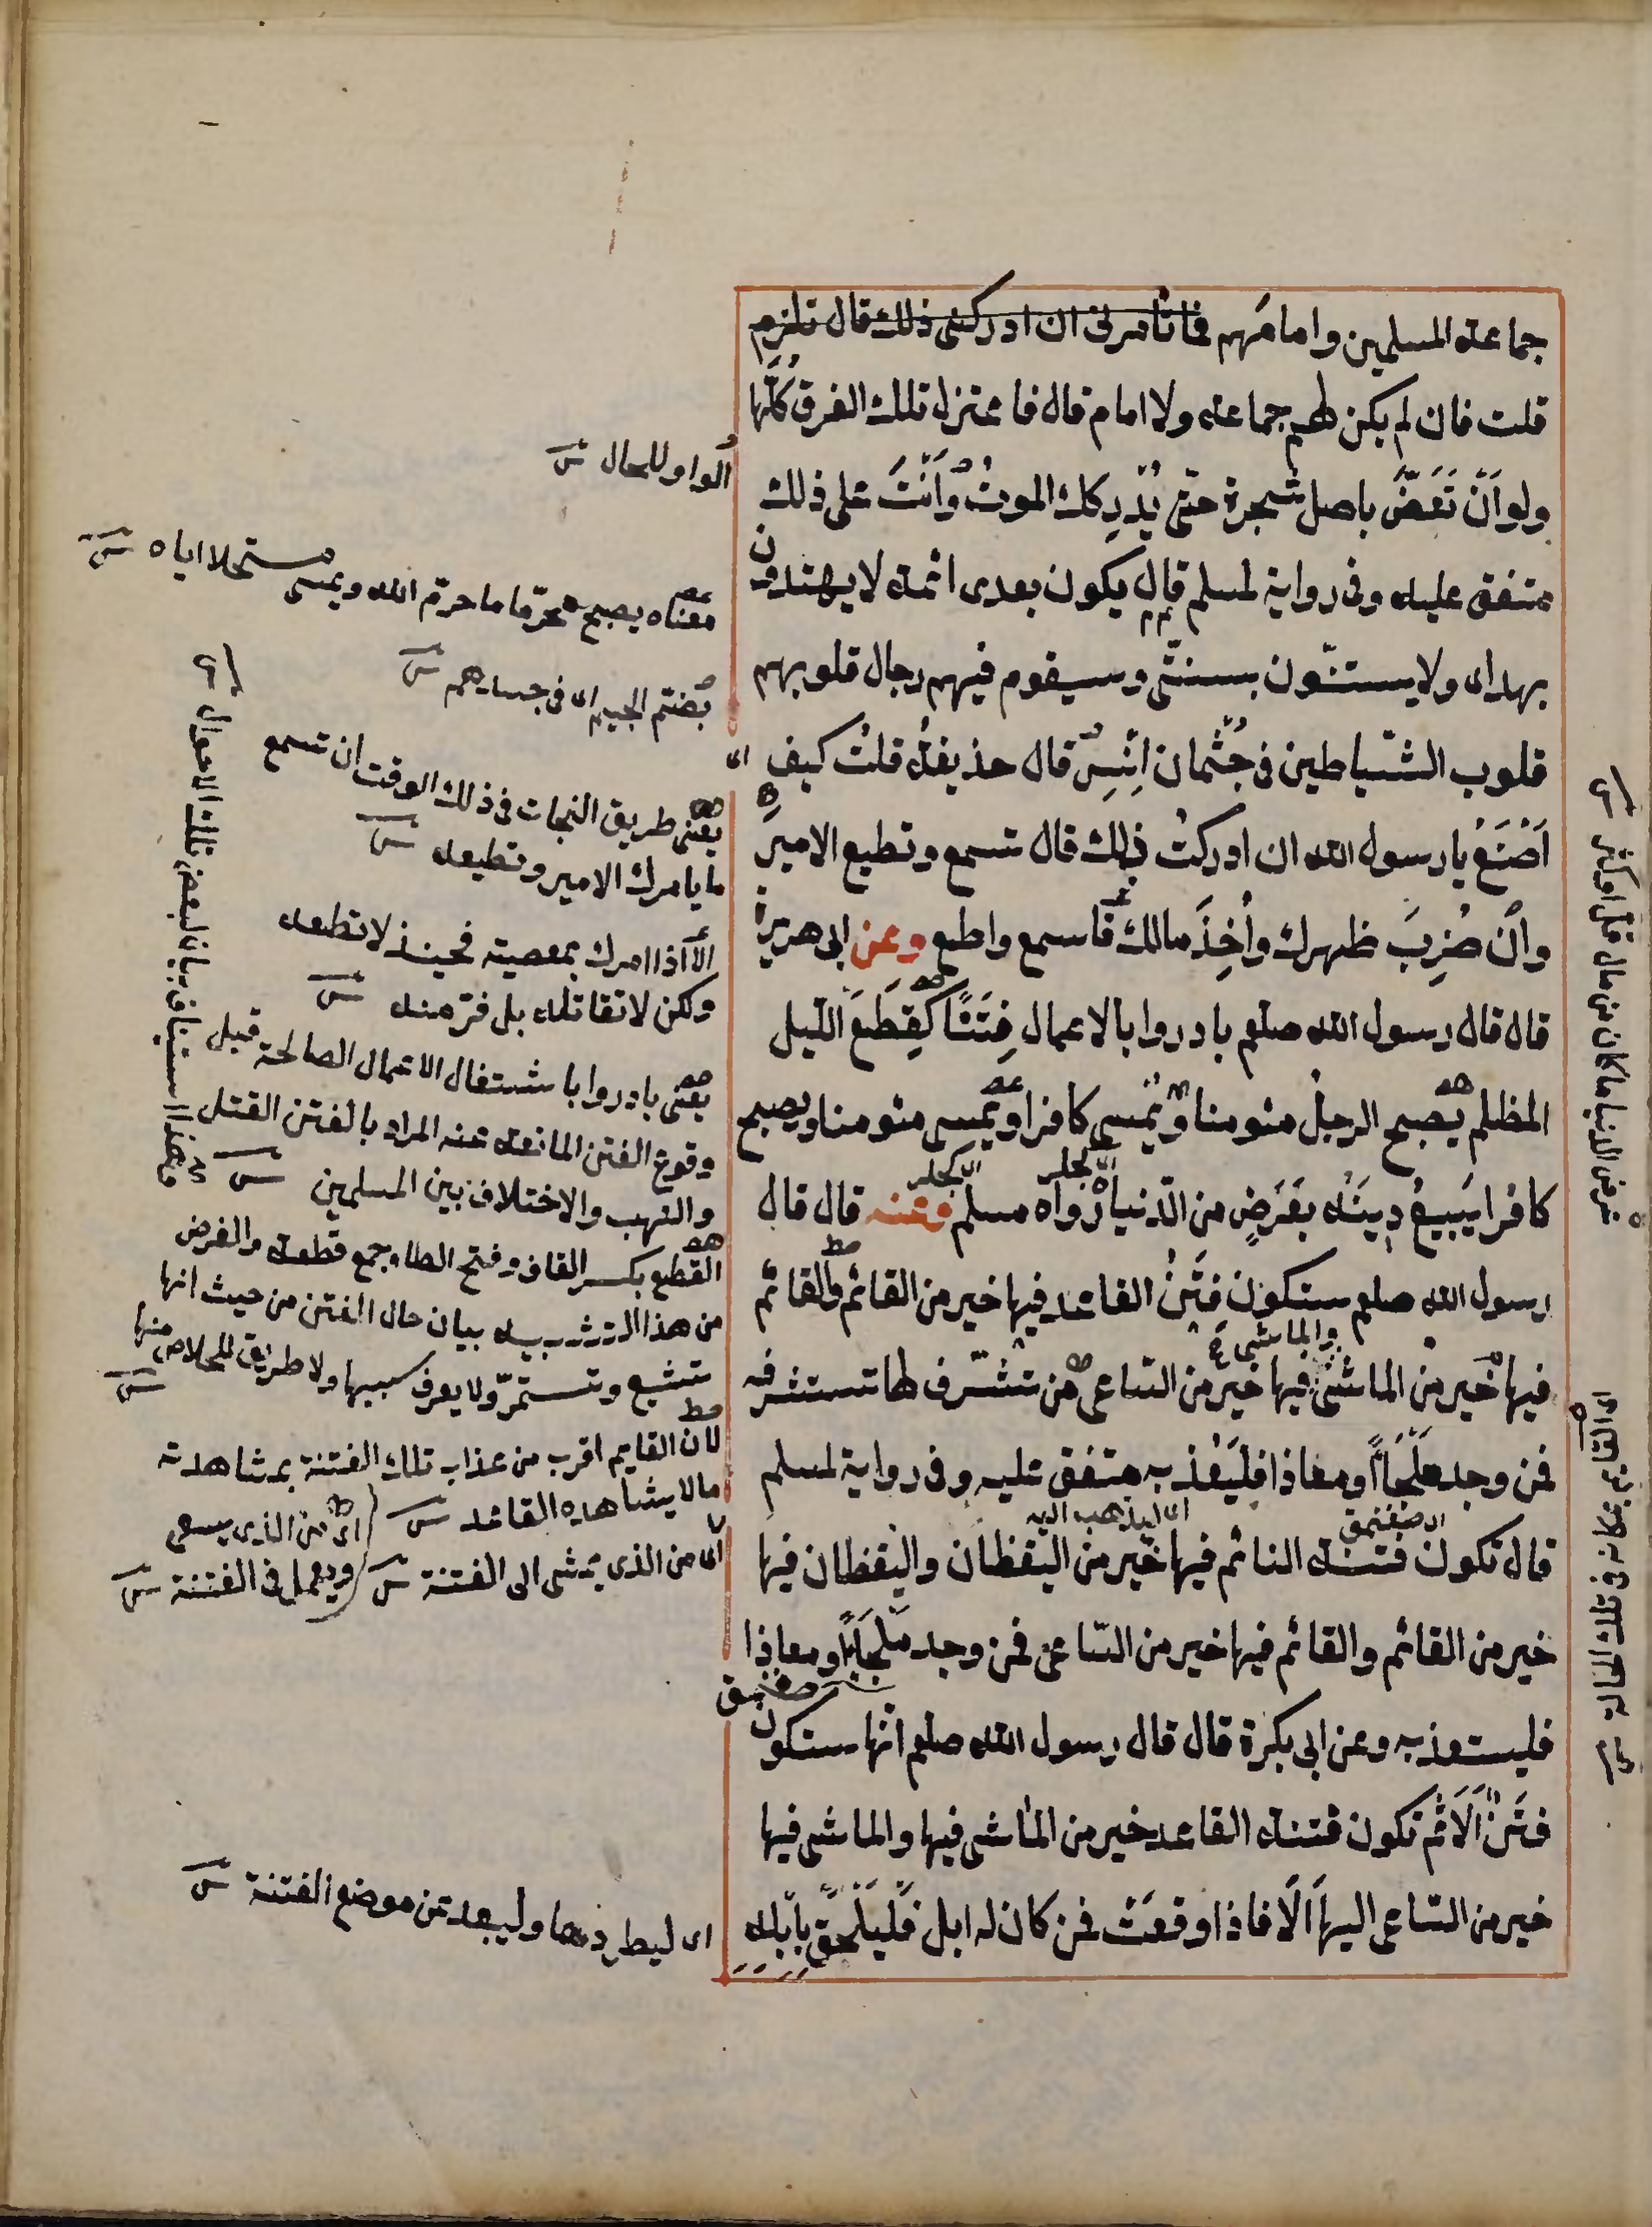 جماعة المسلمين وامامهم فما تأمرنى ان ادركنى ذلك قال تلزم
قلت فان لم يكن لهم جماعة ولا امام قال فاعتزل تلك الفرق كُلَّها
ولو اَنْ تَعَضَّ باصل شجرة حتى يُدْرِكك الموتُ وَاَنْتَ على ذلك
متفق عليه وفى رواية لمسلم قال يكون بعدى ائمة لا يهتدون
بهداى ولا يستنّون بسنتى وسيقوم فيهم رجال قلوبهم
قلوب الشياطين فى جُثْمان اِنْسٍ قال حذيفة قلتُ كيف
اَصْنَعُ يا رسول الله ان ادركتُ ذلك قال تسمع وتطيع الامير
واِن ضُرِبَ ظهرك واُخِذَ مالك فاسمع واطع وعن ابى هريرة
قال قال رسول الله صلعم بادروا بالاعمال فِتَنًا كَقِطَعِ الليل
المظلم يصبح الرجلُ مئومنا ويُمْسى كافرا ويُمسى مئومنا ويصبح
كافرا يَبيعُ دِينَهُ بِعَرَضٍ من الدنيا رواه مسلم وعنه قال قال
رسول الله صلعم ستكون فِتَنٌ القاعد فيها خير من القائم والقائم
فيها خير من الماشى والماشى فيها خير من الساعى من تشرّف لها تستشرفه
فمن وجد مَلْجَأً او معاذا فليَعُذْ به متفق عليه وفى رواية لمسلم
اى ليذهب اليه
قال تكون فتنة النائم فيها خير من اليقظان واليقظان فيها
خير من القائم والقائم فيها خير من الساعى فمن وجد ملجَأً او معاذا
فليستعذ به وعن ابى بكرة قال قال رسول الله صلعم انّها ستكون
فتَنٌ اَلَا ثُمّ تكون فتنة القاعد خير من الماشى فيها والماشى فيها
خير من الساعى اليها اَلَا فاذا وقعَتْ فمن كان له ابل فَلْيَلْحَقْ بابله
الواو للحال
معناه يصبح محرّما ما حرّم الله ويمسى مستحلا اياه
بضم الجيم اى فى جسدهم
يعنى طريق النجات فى ذلك الوقت ان تسمع
ما يامرك الامير وتطيعه
الّا اذا امرك بمعصية فحينئذ لا تطعه
ولكن لا تقاتله بل فرّ منه
يعنى بادروا باشتغال الاعمال الصالحة قبل
وقوع الفتن المانعة عنه المراد بالفتن القتل
والنهب والاختلاف بين المسلمين
القطع بكسر القاف وفتح الطا وجمع قطعة والغرض
من هذا التشبيه بيان حال الفتن من حيث انها
تشيع وتستمرّ ولا يعرف سببها ولا طريق للخلاص منها
لان القايم اقرب من عذاب تلك الفتنة بمشاهدته
ما لا يشاهده القاعد
اى من الذى يسعى
ويعمل فى الفتنة
اى من الذى يمشى الى الفتنة
اى ليطردها وليبعد عن موضع الفتنة
وهذا استيناف بيان لبعض تلك الاحوال